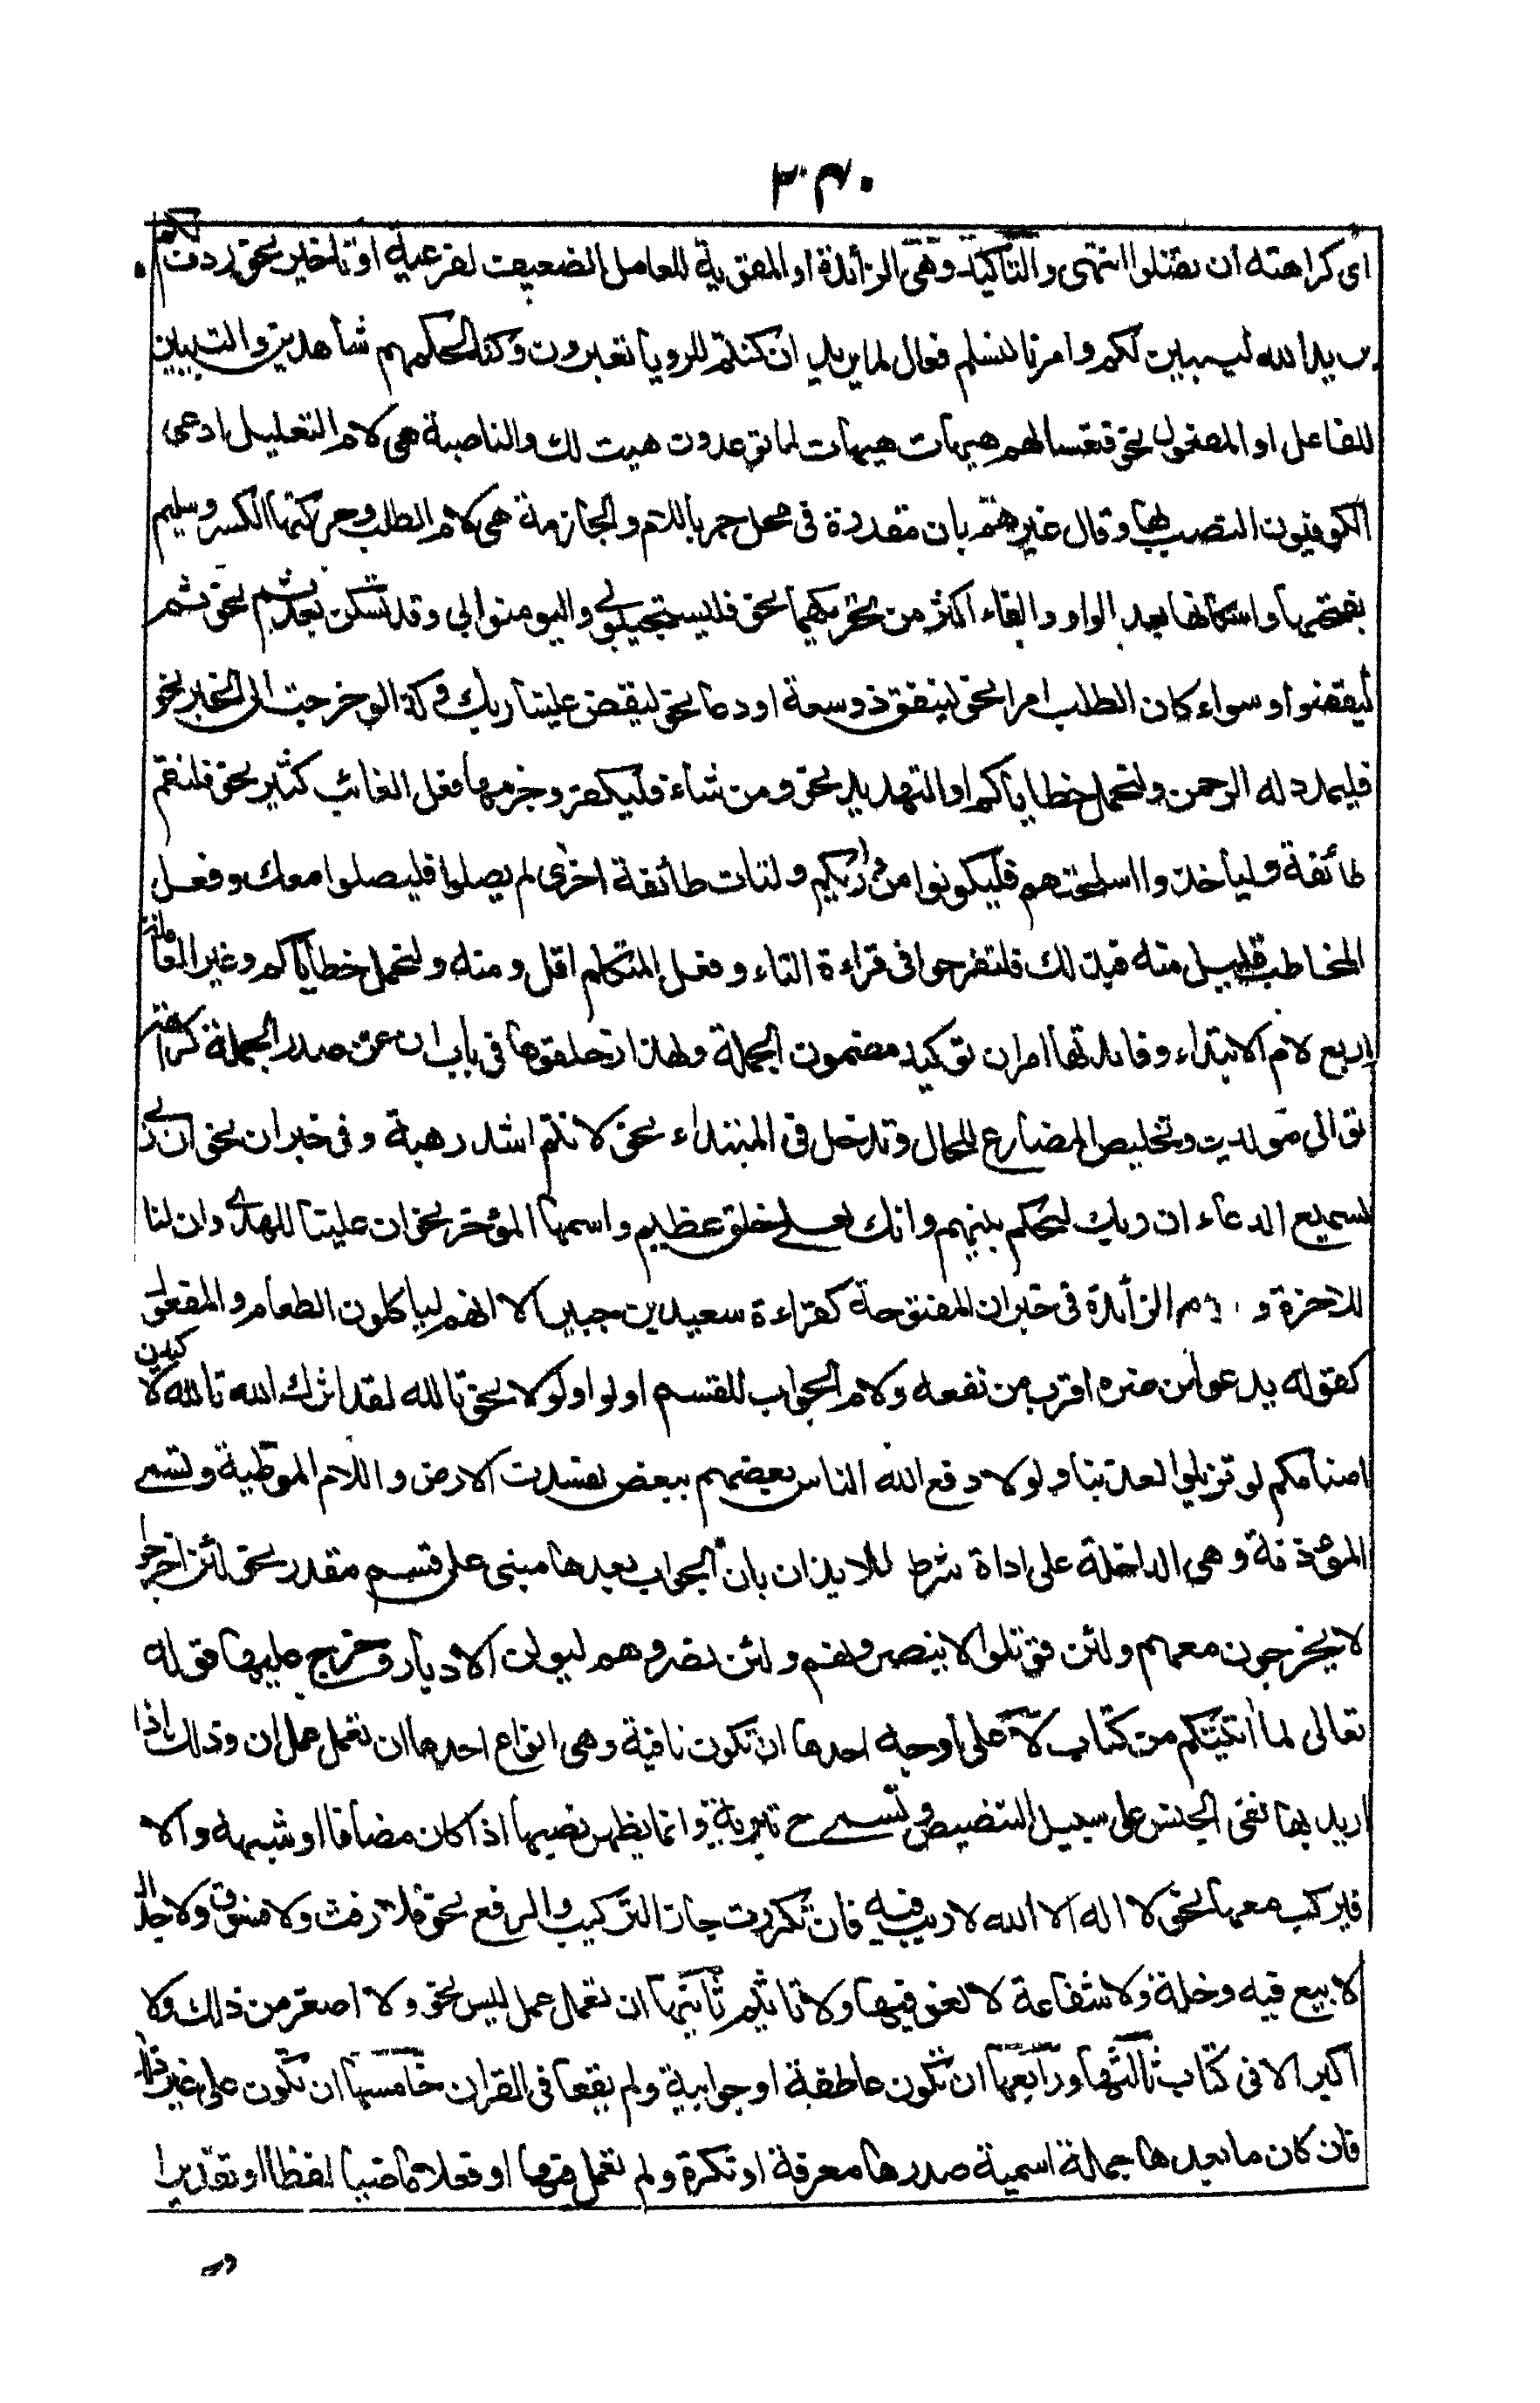 ٣٤٠
اى كراهته ان يضلوا انتهى والتأكيد وهى الزائدة او المقوية للعامل الضعيف لفرعية او تاخير نحو ردف لكم
يريد الله ليبين لكم وامرنا لنسلم فعال لما يريد ان كنتم للرويا تعبرون وكنا لحكمهم شاهدين والتبيين
للفاعل او المفعول نحو فتعسا لهم هيهات هيهات لما توعدون هيت لك والناصبة هى لام التعليل ادعى
الكوفيون النصب بها وقال غيرهم بان مقدرة فى محل جر باللام والجازمة هى لام الطلب وحركتها الكسر وسليم
بفتحها واسكانها بعد الواو والفاء اكثر من تحريكها نحو فليستجيبوا لى واليومنوا بى وقد تسكن بعد ثم نحو ثم
ليقضوا وسواء كان الطلب امرا نحو لينفق ذو سعة او دعا نحو ليقض علينا ربك وكذا لو خرجت الى الخبر نحو
فليمدد له الرحمن ولنحمل خطاياكم او التهديد نحو ومن شاء فليكفر وجزمها فعل الغائب كثير نحو فلتقم
طائفة ولياخذوا اسلحتهم فليكونوا من ورائكم ولتات طائفة اخرى لم يصلوا فليصلوا معك وفعل
المخاطب قليل منه فبذلك فلتفرحوا فى قراءة التاء وفعل المتكلم اقل ومنه ولنحمل خطاياكم وغير العاملة
اربع لام الابتداء وفائدتها امران توكيد مضمون الجملة ولهذا زحلقوها فى باب ان عن صدر الجملة كراهة
توالى موكدين وتخليص المضارع للحال وتدخل فى المبتداء نحو لانتم اشد رهبة وفى خبر ان نحو ان ربى
لسميع الدعاء ان ربك ليحكم بينهم وانك لعلى خلق عظيم واسمها المؤخر نحو ان علينا للهدى وان لنا
للاخرة و الزائدة فى خبر ان المفتوحة كقراءة سعيد بن جبير الا انهم لياكلون الطعام والمفعول
كقوله يدعو لمن ضره اقرب من نفعه ولام الجواب للقسم او لو او لولا نحو تالله لقد اثرك الله تالله لاكيدن
اصنامكم لو تزيلوا لعذبنا ولولا دفع الله الناس بعضهم ببعض لفسدت الارض واللام الموطئة وتسمى
المؤذنة وهى الداخلة على اداة شرط للايذان بان الجواب بعدها مبنى على قسم مقدر نحو لئن اخرجوا
لا يخرجون معهم ولئن قوتلوا لا ينصرونهم ولئن نصروهم ليولن الادبار وخرج عليها قوله
تعالى لما اتيتكم من كتاب لا على اوجه احدها ان تكون نافية وهى انواع احدها ان تعمل عمل ان وذلك اذا
اريد بها نفى الجنس على سبيل التنصيص وتسمى ح تبرية وانما يظهر نصبها اذا كان مضافا او شبهه والا
فيركب معها نحو لا اله الا الله لا ريب فيه فان تكررت جاز التركيب والرفع نحو فلا رفث ولا فسوق ولا جدال
لا بيع فيه وخلة ولا شفاعة لا لغو فيها ولا تاثيم ثانيها ان تعمل عمل ليس نحو ولا اصغر من ذلك ولا
اكبر الا فى كتاب ثالثها ورابعها ان تكون عاطفة او جوابية ولم يقعا فى القران خامسها ان تكون على غير ذلك
فان كان ما بعدها جملة اسمية صدرها معرفة او نكرة ولم تعمل فيها او فعلا ماضيا لفظا او تقديرا